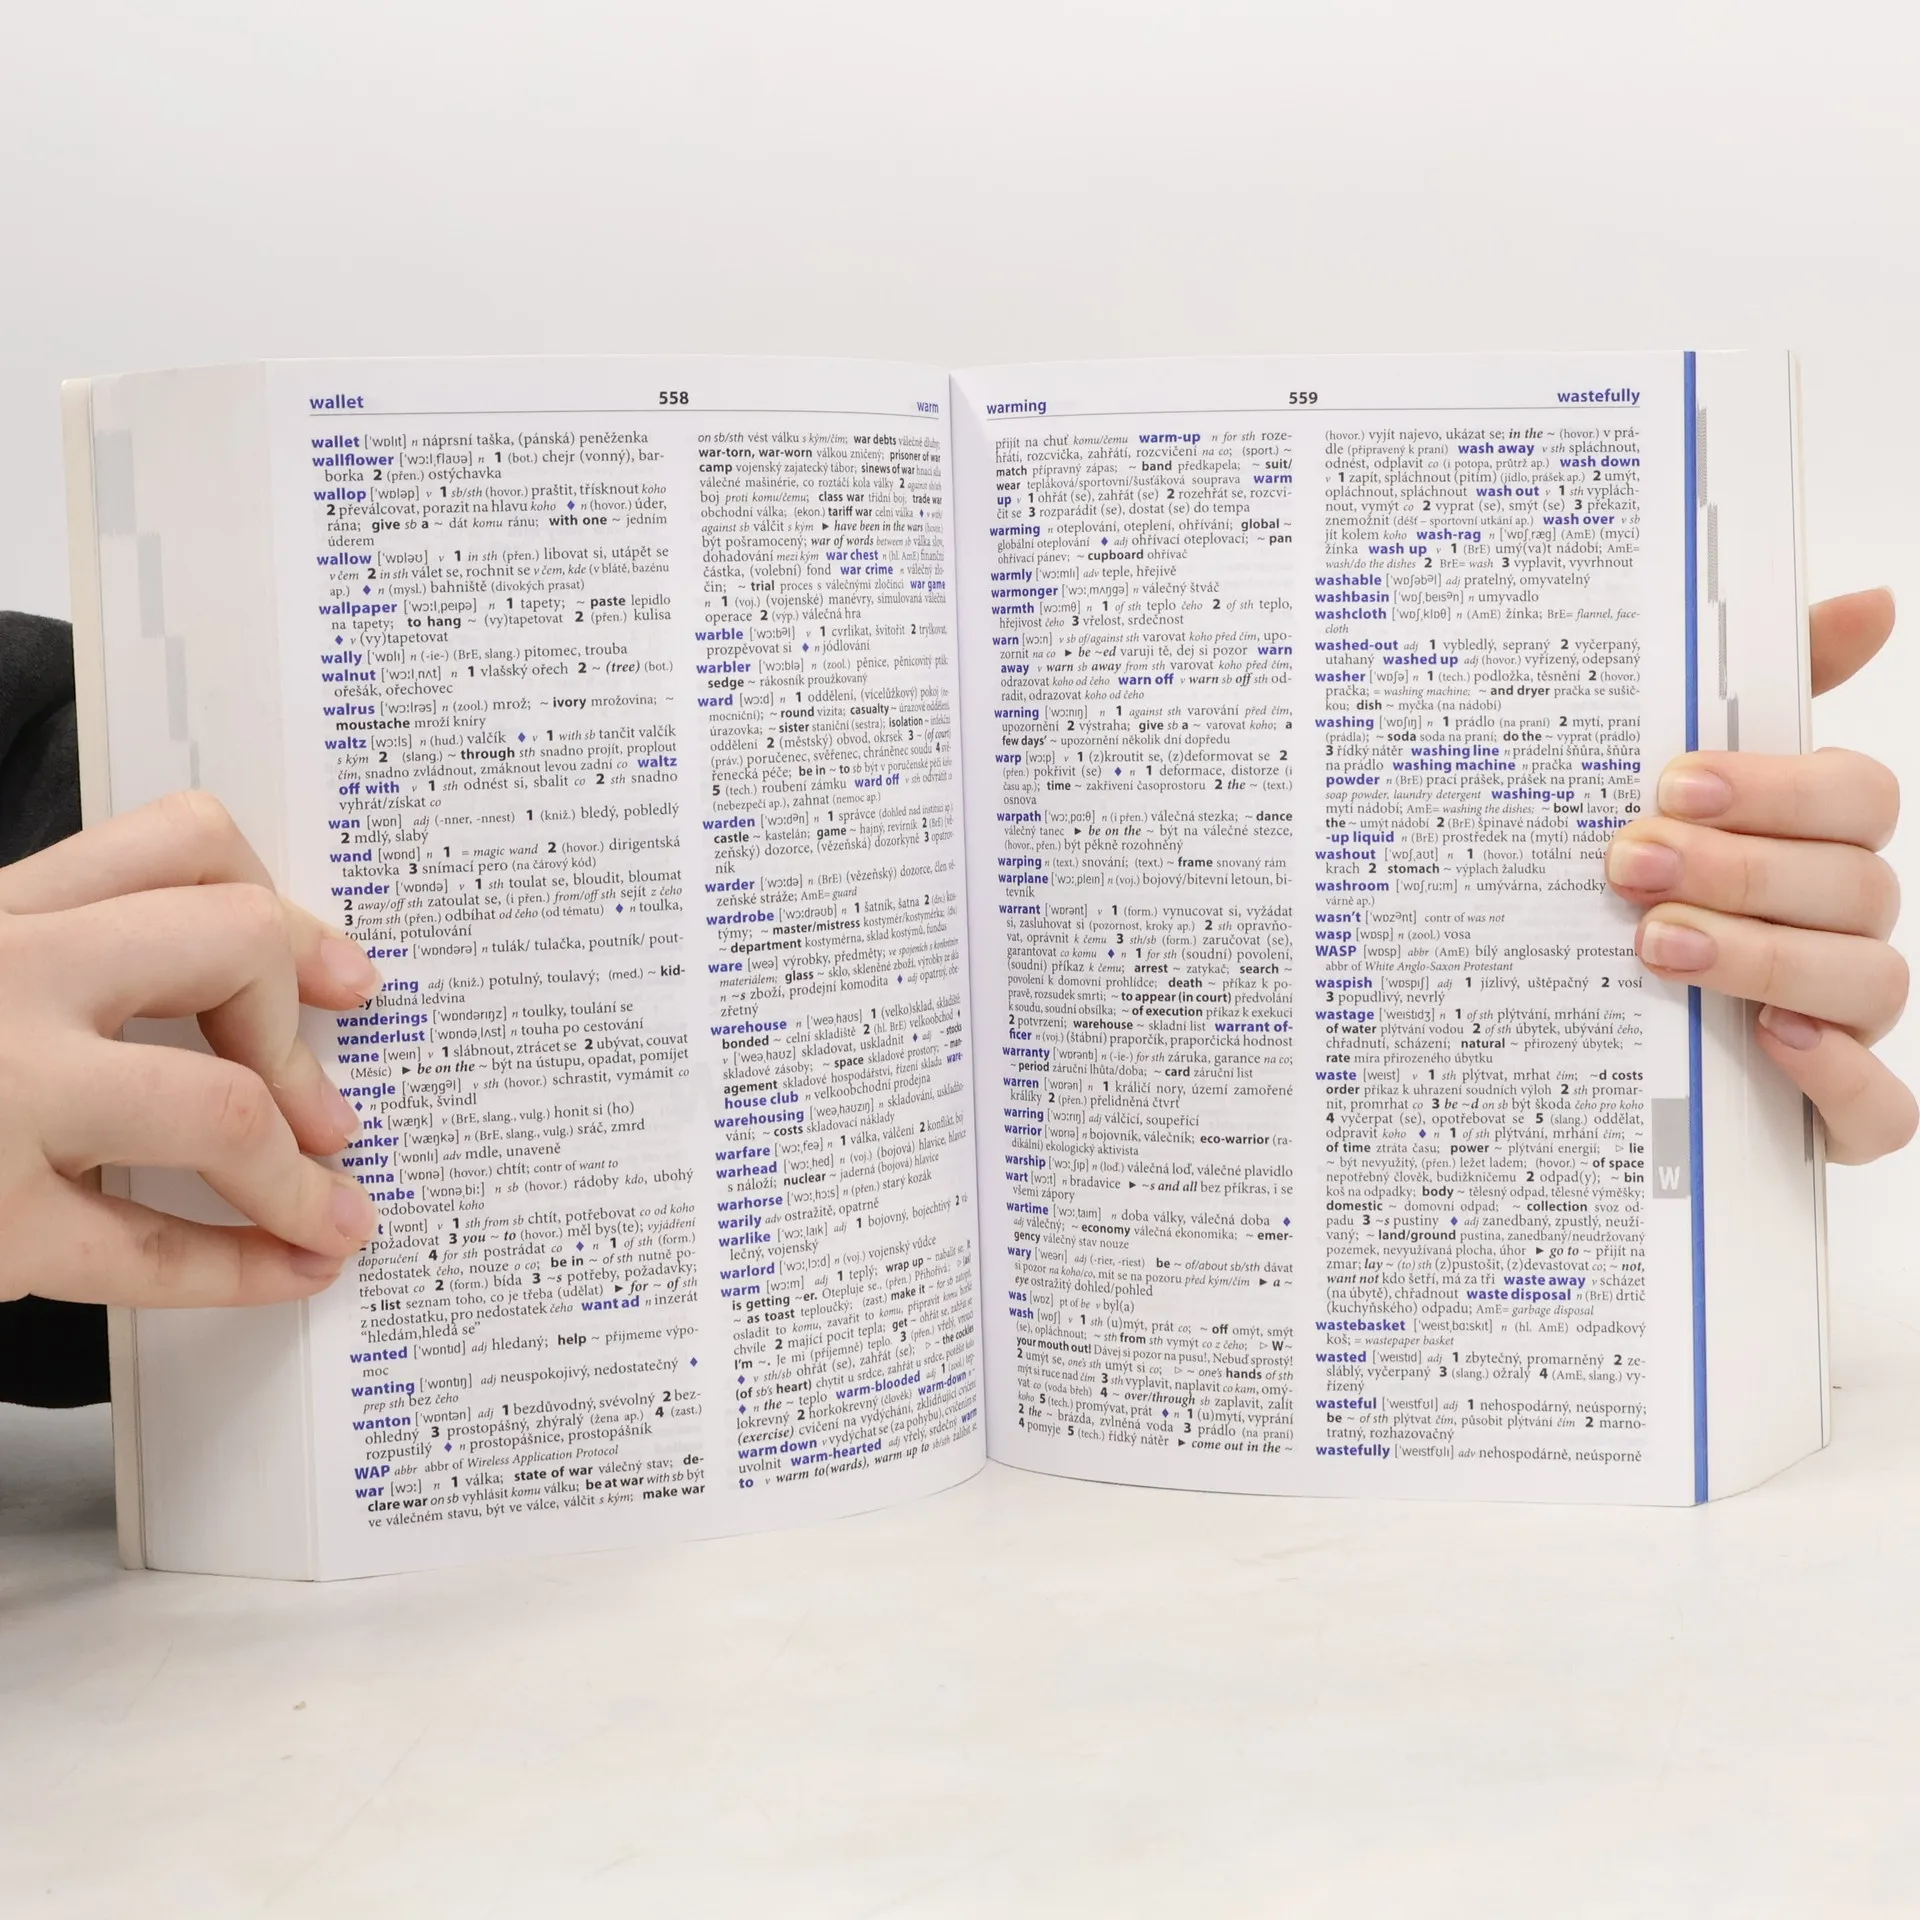 wallet 558 warm
wallet ['wɒlɪt] n náprsní taška, (pánská) peněženka
wallflower ['wɔ:l,flaʊə] n 1 (bot.) chejr (vonný), bar-
borka 2 (přen.) ostýchavka
wallop ['wɒləp] v 1 sb/sth (hovor.) praštit, třísknout koho
2 převálcovat, porazit na hlavu koho ♦ n (hovor.) úder,
rána; give sb a ~ dát komu ránu; with one ~ jedním
úderem
wallow ['wɒləʊ] v 1 in sth (přen.) libovat si, utápět se
v čem 2 in sth válet se, rochnit se v čem, kde (v blátě, bazénu
ap.) ♦ n (mysl.) bahniště (divokých prasat)
wallpaper ['wɔ:l,peɪpə] n 1 tapety; ~ paste lepidlo
na tapety; to hang ~ (vy)tapetovat 2 (přen.) kulisa
♦ v (vy)tapetovat
wally ['wɒlɪ] n (-ie-) (BrE, slang.) pitomec, trouba
walnut ['wɔ:l,nʌt] n 1 vlašský ořech 2 ~ (tree) (bot.)
ořešák, ořechovec
walrus ['wɔ:lrəs] n (zool.) mrož; ~ ivory mrožovina; ~
moustache mroží kníry
waltz [wɔ:ls] n (hud.) valčík ♦ v 1 with sb tančit valčík
s kým 2 (slang.) ~ through sth snadno projít, proplout
čím, snadno zvládnout, zmáknout levou zadní co waltz
off with v 1 sth odnést si, sbalit co 2 sth snadno
vyhrát/získat co
wan [wɒn] adj (-nner, -nnest) 1 (kniž.) bledý, pobledlý
2 mdlý, slabý
wand [wɒnd] n 1 = magic wand 2 (hovor.) dirigentská
taktovka 3 snímací pero (na čárový kód)
wander ['wɒndə] v 1 sth toulat se, bloudit, bloumat
2 away/off sth zatoulat se, (i přen.) from/off sth sejít z čeho
3 from sth (přen.) odbíhat od čeho (od tématu) ♦ n toulka,
toulání, potulování
derer ['wɒndərə] n tulák/ tulačka, poutník/ pout-
ering adj (kniž.) potulný, toulavý; (med.) ~ kid-
y bludná ledvina
wanderings ['wɒndərɪŋz] n toulky, toulání se
wanderlust ['wɒndə,lʌst] n touha po cestování
wane [weɪn] v 1 slábnout, ztrácet se 2 ubývat, couvat
(Měsíc) ► be on the ~ být na ústupu, opadat, pomíjet
wangle ['wæŋgəl] v sth (hovor.) schrastit, vymámit co
♦ n podfuk, švindl
nk [wæŋk] v (BrE, slang., vulg.) honit si (ho)
anker ['wæŋkə] n (BrE, slang., vulg.) sráč, zmrd
wanly ['wɒnlɪ] adv mdle, unaveně
anna ['wɒnə] (hovor.) chtít; contr of want to
nnabe ['wɒnə,bi:] n sb (hovor.) rádoby kdo, ubohý
podobovatel koho
t [wɒnt] v 1 sth from sb chtít, potřebovat co od koho
požadovat 3 you ~ to (hovor.) měl bys(te); vyjádření
doporučení 4 for sth postrádat co ♦ n 1 of sth (form.)
nedostatek čeho, nouze o co; be in ~ of sth nutně po-
třebovat co 2 (form.) bída 3 ~s potřeby, požadavky;
~s list seznam toho, co je třeba (udělat) ► for ~ of sth
z nedostatku, pro nedostatek čeho want ad n inzerát
"hledám, hledá se"
wanted ['wɒntɪd] adj hledaný; help ~ přijmeme výpo-
moc
wanting ['wɒntɪŋ] adj neuspokojivý, nedostatečný ♦
prep sth bez čeho
wanton ['wɒntən] adj 1 bezdůvodný, svévolný 2 bez-
ohledný 3 prostopášný, zhýralý (žena ap.) 4 (zast.)
rozpustilý ♦ n prostopášnice, prostopášník
WAP abbr abbr of Wireless Application Protocol
war [wɔ:] n 1 válka; state of war válečný stav; de-
clare war on sb vyhlásit komu válku; be at war with sb být
ve válečném stavu, být ve válce, válčit s kým; make war
on sb/sth vést válku s kým/čím; war debts válečné dluhy;
war-torn, war-worn válkou zničený; prisoner of war
camp vojenský zajatecký tábor; sinews of war hnací síla
válečné mašinérie, co roztáčí kola války 2 against sb/sth
boj proti komu/čemu; class war třídní boj; trade war
obchodní válka; (ekon.) tariff war celní válka ♦ v with/
against sb válčit s kým ► have been in the wars (hovor.)
být pošramocený; war of words between sb válka slov,
dohadování mezi kým war chest n (hl. AmE) finanční
částka, (volební) fond war crime n válečný zlo-
čin; ~ trial proces s válečnými zločinci war game
n 1 (voj.) (vojenské) manévry, simulovaná válečná
operace 2 (výp.) válečná hra
warble ['wɔ:bəl] v 1 cvrlikat, švitořit 2 trylkovat,
prozpěvovat si ♦ n jódlování
warbler ['wɔ:blə] n (zool.) pěnice, pěnicovitý pták;
sedge ~ rákosník proužkovaný
ward [wɔ:d] n 1 oddělení, (vícelůžkový) pokoj (ne-
mocniční); ~ round vizita; casualty ~ úrazové oddělení,
úrazovka; ~ sister staniční (sestra); isolation ~ infekční
oddělení 2 (městský) obvod, okrsek 3 ~ (of court)
(práv.) poručenec, svěřenec, chráněnec soudu 4 svě-
řenecká péče; be in ~ to sb být v poručenské péči koho
5 (tech.) roubení zámku ward off v sth odvrátit co
(nebezpečí ap.), zahnat (nemoc ap.)
warden ['wɔ:dən] n 1 správce (dohled nad institucí ap.)
castle ~ kastelán; game ~ hajný, revírník 2 (BrE) (vě-
zeňský) dozorce, (vězeňská) dozorkyně 3 opatrov-
ník
warder ['wɔ:də] n (BrE) (vězeňský) dozorce, člen vě-
zeňské stráže; AmE= guard
wardrobe ['wɔ:drəʊb] n 1 šatník, šatna 2 (div.) kos-
týmy; ~ master/mistress kostymér/kostymérka; (div.)
~ department kostymérna, sklad kostýmů, fundus
ware [weə] výrobky, předměty; ve spojeních s konkrétním
materiálem; glass ~ sklo, skleněné zboží, výrobky ze skla
n ~s zboží, prodejní komodita ♦ adj opatrný, obe-
zřetný
warehouse n ['weə,haʊs] 1 (velko)sklad, skladiště
bonded ~ celní skladiště 2 (hl. BrE) velkoobchod ♦
v ['weə,haʊz] skladovat, uskladnit ♦ adj ~ stocks
skladové zásoby; ~ space skladové prostory; ~ man-
agement skladové hospodářství, řízení skladu ware-
house club n velkoobchodní prodejna
warehousing ['weə,haʊzɪŋ] n skladování, uskladňo-
vání; ~ costs skladovací náklady
warfare ['wɔ:,feə] n 1 válka, válčení 2 konflikt, boj
warhead ['wɔ:,hed] n (voj.) (bojová) hlavice, hlavice
s náloží; nuclear ~ jaderná (bojová) hlavice
warhorse ['wɔ:,hɔ:s] n (přen.) starý kozák
warily adv ostražitě, opatrně
warlike ['wɔ:,laɪk] adj 1 bojovný, bojechtivý 2 vá-
lečný, vojenský
warlord ['wɔ:,lɔ:d] n (voj.) vojenský vůdce
warm [wɔ:m] adj 1 teplý; wrap up ~ nabalit se. It
is getting ~er. Otepluje se., (přen.) Přihořívá; ▷ (as)
~ as toast teploučký; (zast.) make it ~ for sb zatopit,
osladit to komu, zavařit to komu, připravit komu horké
chvíle 2 mající pocit tepla; get ~ ohřát se, zahřát se
I'm ~. Je mi (příjemně) teplo. 3 (přen.) vřelý, vroucí
♦ v sth/sb ohřát (se), zahřát (se); ▷ ~ the cockles
(of sb's heart) chytit u srdce, zahřát u srdce, potěšit koho
♦ n the ~ teplo warm-blooded adj 1 (zool.) tep-
lokrevný 2 horkokrevný (člověk) warm-down n ~
(exercise) cvičení na vydýchání, zklidňující cvičení
warm down v vydýchat se (za pohybu), cvičením se
uvolnit warm-hearted adj vřelý, srdečný warm
to v warm to(wards), warm up to sb/sth zalíbit se
warming 559 wastefully
přijít na chuť komu/čemu warm-up n for sth roze-
hřátí, rozcvička, zahřátí, rozcvičení na co; (sport.) ~
match přípravný zápas; ~ band předkapela; ~ suit/
wear tepláková/sportovní/šusťáková souprava warm
up v 1 ohřát (se), zahřát (se) 2 rozehřát se, rozcvi-
čit se 3 rozparádit (se), dostat (se) do tempa
warming n oteplování, oteplení, ohřívání; global ~
globální oteplování ♦ adj ohřívací oteplovací; ~ pan
ohřívací pánev; ~ cupboard ohřívač
warmly ['wɔ:mlɪ] adv teple, hřejivě
warmonger ['wɔ:,mʌŋgə] n válečný štváč
warmth [wɔ:mθ] n 1 of sth teplo čeho 2 of sth teplo,
hřejivost čeho 3 vřelost, srdečnost
warn [wɔ:n] v sb of/against sth varovat koho před čím, upo-
zornit na co ► be ~ed varuji tě, dej si pozor warn
away v warn sb away from sth varovat koho před čím,
odrazovat koho od čeho warn off v warn sb off sth od-
radit, odrazovat koho od čeho
warning ['wɔ:nɪŋ] n 1 against sth varování před čím,
upozornění 2 výstraha; give sb a ~ varovat koho; a
few days' ~ upozornění několik dní dopředu
warp [wɔ:p] v 1 (z)kroutit se, (z)deformovat se 2
(přen.) pokřivit (se) ♦ n 1 deformace, distorze (i
času ap.); time ~ zakřivení časoprostoru 2 the ~ (text.)
osnova
warpath ['wɔ:,pɑ:θ] n (i přen.) válečná stezka; ~ dance
válečný tanec ► be on the ~ být na válečné stezce,
(hovor., přen.) být pěkně rozohněný
warping n (text.) snování; (text.) ~ frame snovaný rám
warplane ['wɔ:,pleɪn] n (voj.) bojový/bitevní letoun, bi-
tevník
warrant ['wɒrənt] v 1 (form.) vynucovat si, vyžádat
si, zasluhovat si (pozornost, kroky ap.) 2 sth opravňo-
vat, oprávnit k čemu 3 sth/sb (form.) zaručovat (se),
garantovat co komu ♦ n 1 for sth (soudní) povolení,
(soudní) příkaz k čemu; arrest ~ zatykač; search ~
povolení k domovní prohlídce; death ~ příkaz k po-
pravě, rozsudek smrti; ~ to appear (in court) předvolání
k soudu, soudní obsílka; ~ of execution příkaz k exekuci
2 potvrzení; warehouse ~ skladní list warrant of-
ficer n (voj.) (štábní) praporčík, praporčická hodnost
warranty ['wɒrəntɪ] n (-ie-) for sth záruka, garance na co;
~ period záruční lhůta/doba; ~ card záruční list
warren ['wɒrən] n 1 králičí nory, území zamořené
králíky 2 (přen.) přelidněná čtvrť
warring ['wɔ:rɪŋ] adj válčící, soupeřící
warrior ['wɒrɪə] n bojovník, válečník; eco-warrior (ra-
dikální) ekologický aktivista
warship ['wɔ:,ʃɪp] n (loď.) válečná loď, válečné plavidlo
wart [wɔ:t] n bradavice ► ~s and all bez příkras, i se
všemi zápory
wartime ['wɔ:,taɪm] n doba války, válečná doba ♦
adj válečný; ~ economy válečná ekonomika; ~ emer-
gency válečný stav nouze
wary ['weərɪ] adj (-rier, -riest) be ~ of/about sb/sth dávat
si pozor na koho/co, mít se na pozoru před kým/čím ► a ~
eye ostražitý dohled/pohled
was [wɒz] pt of be v byl(a)
wash [wɒʃ] v 1 sth (u)mýt, prát co; ~ off omýt, smýt
(se), opláchnout; ~ sth from sth vymýt co z čeho; ▷ W~
your mouth out! Dávej si pozor na pusu!, Nebuď sprostý!
2 umýt se, one's sth umýt si co; ▷ ~ one's hands of sth
mýt si ruce nad čím 3 sth vyplavit, naplavit co kam, omý-
vat co (voda břeh) 4 ~ over/through sb zaplavit, zalít
koho 5 (tech.) promývat, prát ♦ n 1 (u)mytí, vyprání
2 the ~ brázda, zvlněná voda 3 prádlo (na praní)
4 pomyje 5 (tech.) řídký nátěr ► come out in the ~
(hovor.) vyjít najevo, ukázat se; in the ~ (hovor.) v prá-
dle (připravený k praní) wash away v sth spláchnout,
odnést, odplavit co (i potopa, průtrž ap.) wash down
v 1 zapít, spláchnout (pitím) (jídlo, prášek ap.) 2 umýt,
opláchnout, spláchnout wash out v 1 sth vyplách-
nout, vymýt co 2 vyprat (se), smýt (se) 3 překazit,
znemožnit (déšť – sportovní utkání ap.) wash over v sb
jít kolem koho wash-rag n ['wɒʃ,ræg] (AmE) (mycí)
žínka wash up v 1 (BrE) umý(va)t nádobí; AmE=
wash/do the dishes 2 BrE= wash 3 vyplavit, vyvrhnout
washable ['wɒʃəbəl] adj pratelný, omyvatelný
washbasin ['wɒʃ,beɪsən] n umyvadlo
washcloth ['wɒʃ,klɒθ] n (AmE) žínka; BrE= flannel, face-
cloth
washed-out adj 1 vybledlý, sepraný 2 vyčerpaný,
utahaný washed up adj (hovor.) vyřízený, odepsaný
washer ['wɒʃə] n 1 (tech.) podložka, těsnění 2 (hovor.)
pračka; = washing machine; ~ and dryer pračka se sušič-
kou; dish ~ myčka (na nádobí)
washing ['wɒʃɪŋ] n 1 prádlo (na praní) 2 mytí, praní
(prádla); ~ soda soda na praní; do the ~ vyprat (prádlo)
3 řídký nátěr washing line n prádelní šňůra, šňůra
na prádlo washing machine n pračka washing
powder n (BrE) prací prášek, prášek na praní; AmE=
soap powder, laundry detergent washing-up n 1 (BrE)
mytí nádobí; AmE= washing the dishes; ~ bowl lavor; do
the ~ umýt nádobí 2 (BrE) špinavé nádobí washing
-up liquid n (BrE) prostředek na (mytí) nádobí
washout ['wɒʃ,aʊt] n 1 (hovor.) totální neús
krach 2 stomach ~ výplach žaludku
washroom ['wɒʃ,ru:m] n umývárna, záchodky
várně ap.)
wasn't ['wɒzənt] contr of was not
wasp [wɒsp] n (zool.) vosa
WASP [wɒsp] abbr (AmE) bílý anglosaský protestant
abbr of White Anglo-Saxon Protestant
waspish ['wɒspɪʃ] adj 1 jízlivý, uštěpačný 2 vosí
3 popudlivý, nevrlý
wastage ['weɪstɪdʒ] n 1 of sth plýtvání, mrhání čím; ~
of water plýtvání vodou 2 of sth úbytek, ubývání čeho,
chřadnutí, scházení; natural ~ přirozený úbytek; ~
rate míra přirozeného úbytku
waste [weɪst] v 1 sth plýtvat, mrhat čím; ~d costs
order příkaz k uhrazení soudních výloh 2 sth promar-
nit, promrhat co 3 be ~d on sb být škoda čeho pro koho
4 vyčerpat (se), opotřebovat se 5 (slang.) oddělat,
odpravit koho ♦ n 1 of sth plýtvání, mrhání čím; ~
of time ztráta času; power ~ plýtvání energií; ▷ lie
~ být nevyužitý, (přen.) ležet ladem; (hovor.) ~ of space
nepotřebný člověk, budižkničemu 2 odpad(y); ~ bin
koš na odpadky; body ~ tělesný odpad, tělesné výměšky;
domestic ~ domovní odpad; ~ collection svoz od-
padu 3 ~s pustiny ♦ adj zanedbaný, zpustlý, neuží-
vaný; ~ land/ground pustina, zanedbaný/neudržovaný
pozemek, nevyužívaná plocha, úhor ► go to ~ přijít na
zmar; lay ~ (to) sth (z)pustošit, (z)devastovat co; ~ not,
want not kdo šetří, má za tři waste away v scházet
(na úbytě), chřadnout waste disposal n (BrE) drtič
(kuchyňského) odpadu; AmE= garbage disposal
wastebasket ['weɪst,bɑ:skɪt] n (hl. AmE) odpadkový
koš; = wastepaper basket
wasted ['weɪstɪd] adj 1 zbytečný, promarněný 2 ze-
sláblý, vyčerpaný 3 (slang.) ožralý 4 (AmE, slang.) vy-
řízený
wasteful ['weɪstfʊl] adj 1 nehospodárný, neúsporný;
be ~ of sth plýtvat čím, působit plýtvání čím 2 marno-
tratný, rozhazovačný
wastefully ['weɪstfʊlɪ] adv nehospodárně, neúsporně
W